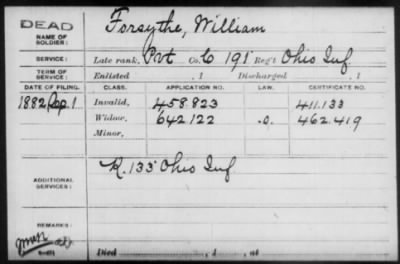 DEAD
NAME OF SOLDIER: Forsythe, William
SERVICE: Late rank, Pvt Co. C 191 Reg't Ohio Inf
TERM OF SERVICE: Enlisted , 1 Discharged , 1
DATE OF FILING. CLASS. APPLICATION NO. LAW. CERTIFICATE NO.
1882 Sep. 1 Invalid, 458.823 411.133
Widow, 642122 462.419
Minor,
ADDITIONAL SERVICES: K. 133 Ohio Inf
REMARKS:
Died , 1 , at